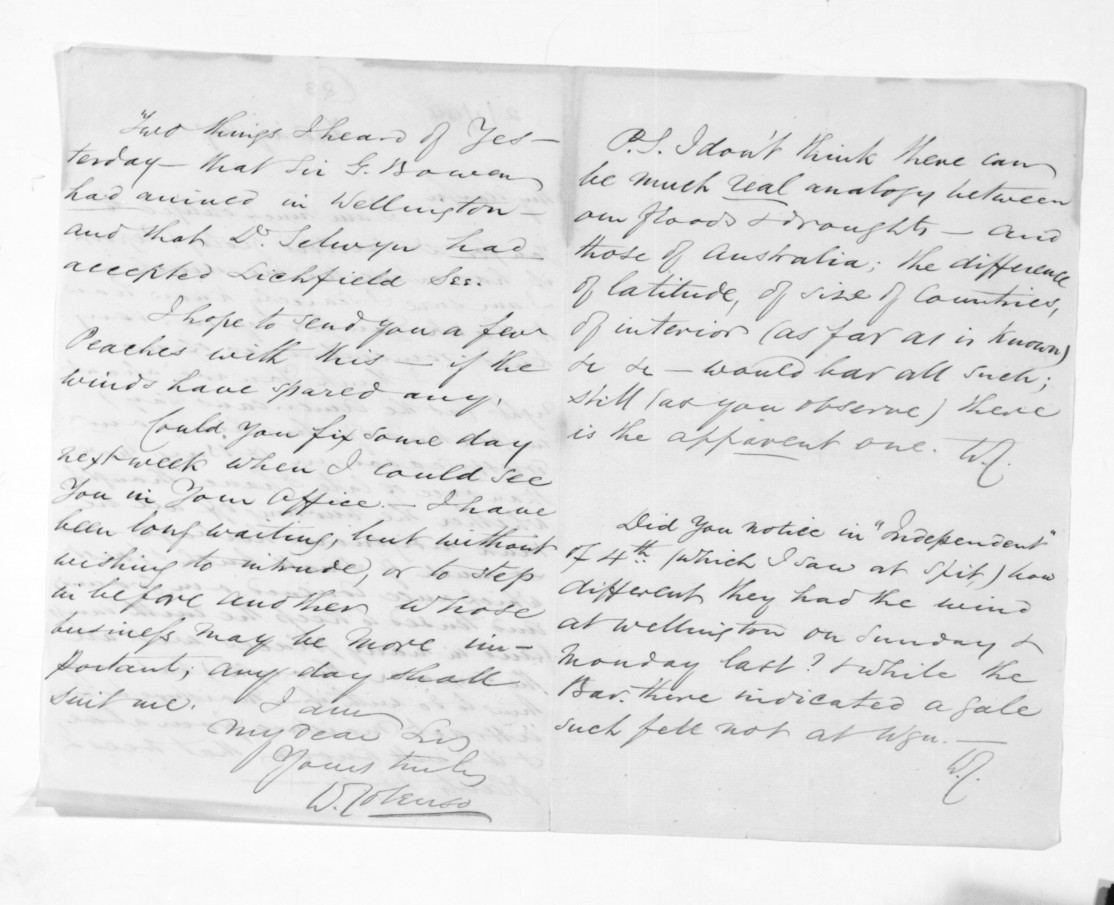 Two things I heard of Yes-
terday — that Sir G. Bowen
had arrived in Wellington —
and that Dr. Selwyn had
accepted Lichfield See.
I hope to send you a few
Peaches with this — if the
winds have spared any.
Could you fix some day
next week when I could see
You in Your Office. — I have
been long waiting, but without
wishing to intrude, or to step
in before another whose
business may be more im-
portant; any day shall
suit me. I am
My Dear Sir
Yours truly
W. Colenso
P.S. I don't think there can
be much real analogy between
our floods & droughts — and
those of Australia; the difference
of latitude, of size of Countries,
of interior (as far as is known)
&c &c — would bar all such;
still (as you observe) there
is the apparent one. WC.
Did You notice in "Independent"
of 4th. (which I saw at Spit,) how
different they had the wind
at Wellington on Sunday &
Monday last? & while the
Bar. there indicated a gale
such fell not at Wgn. —
WC.